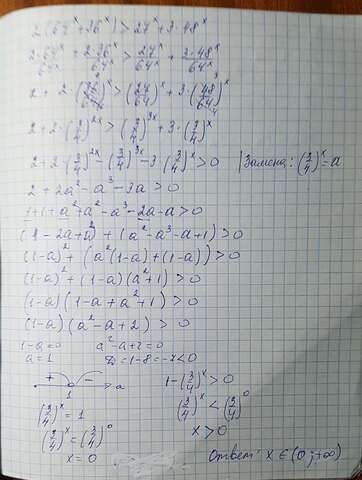 2(64^x + 36^x) > 27^x + 3·48^x
2·64^x/64^x + 2·36^x/64^x > 27^x/64^x + 3·48^x/64^x
2 + 2·( )^x > (27/64)^x + 3·(48/64)^x
2 + 2·(3/4)^2x > (3/4)^3x + 3·(3/4)^x
2 + 2·(3/4)^2x - (3/4)^3x - 3·(3/4)^x > 0 | Замена: (3/4)^x = a
2 + 2a² - a³ - 3a > 0
1+1+a²+a²-a³-2a-a > 0
(1 - 2a + a²) + (a² - a³ - a + 1) > 0
(1-a)² + (a²(1-a) + (1-a)) > 0
(1-a)² + (1-a)(a²+1) > 0
(1-a)(1-a+a²+1) > 0
(1-a)(a²-a+2) > 0
1-a=0 a²-a+2=0
a=1 D=1-8=-7<0
+ - 1 a 1-(3/4)^x > 0
(3/4)^x = 1 (3/4)^x < (3/4)^0
(3/4)^x = (3/4)^0 x > 0
x = 0 Ответ: x ∈ (0; +∞)